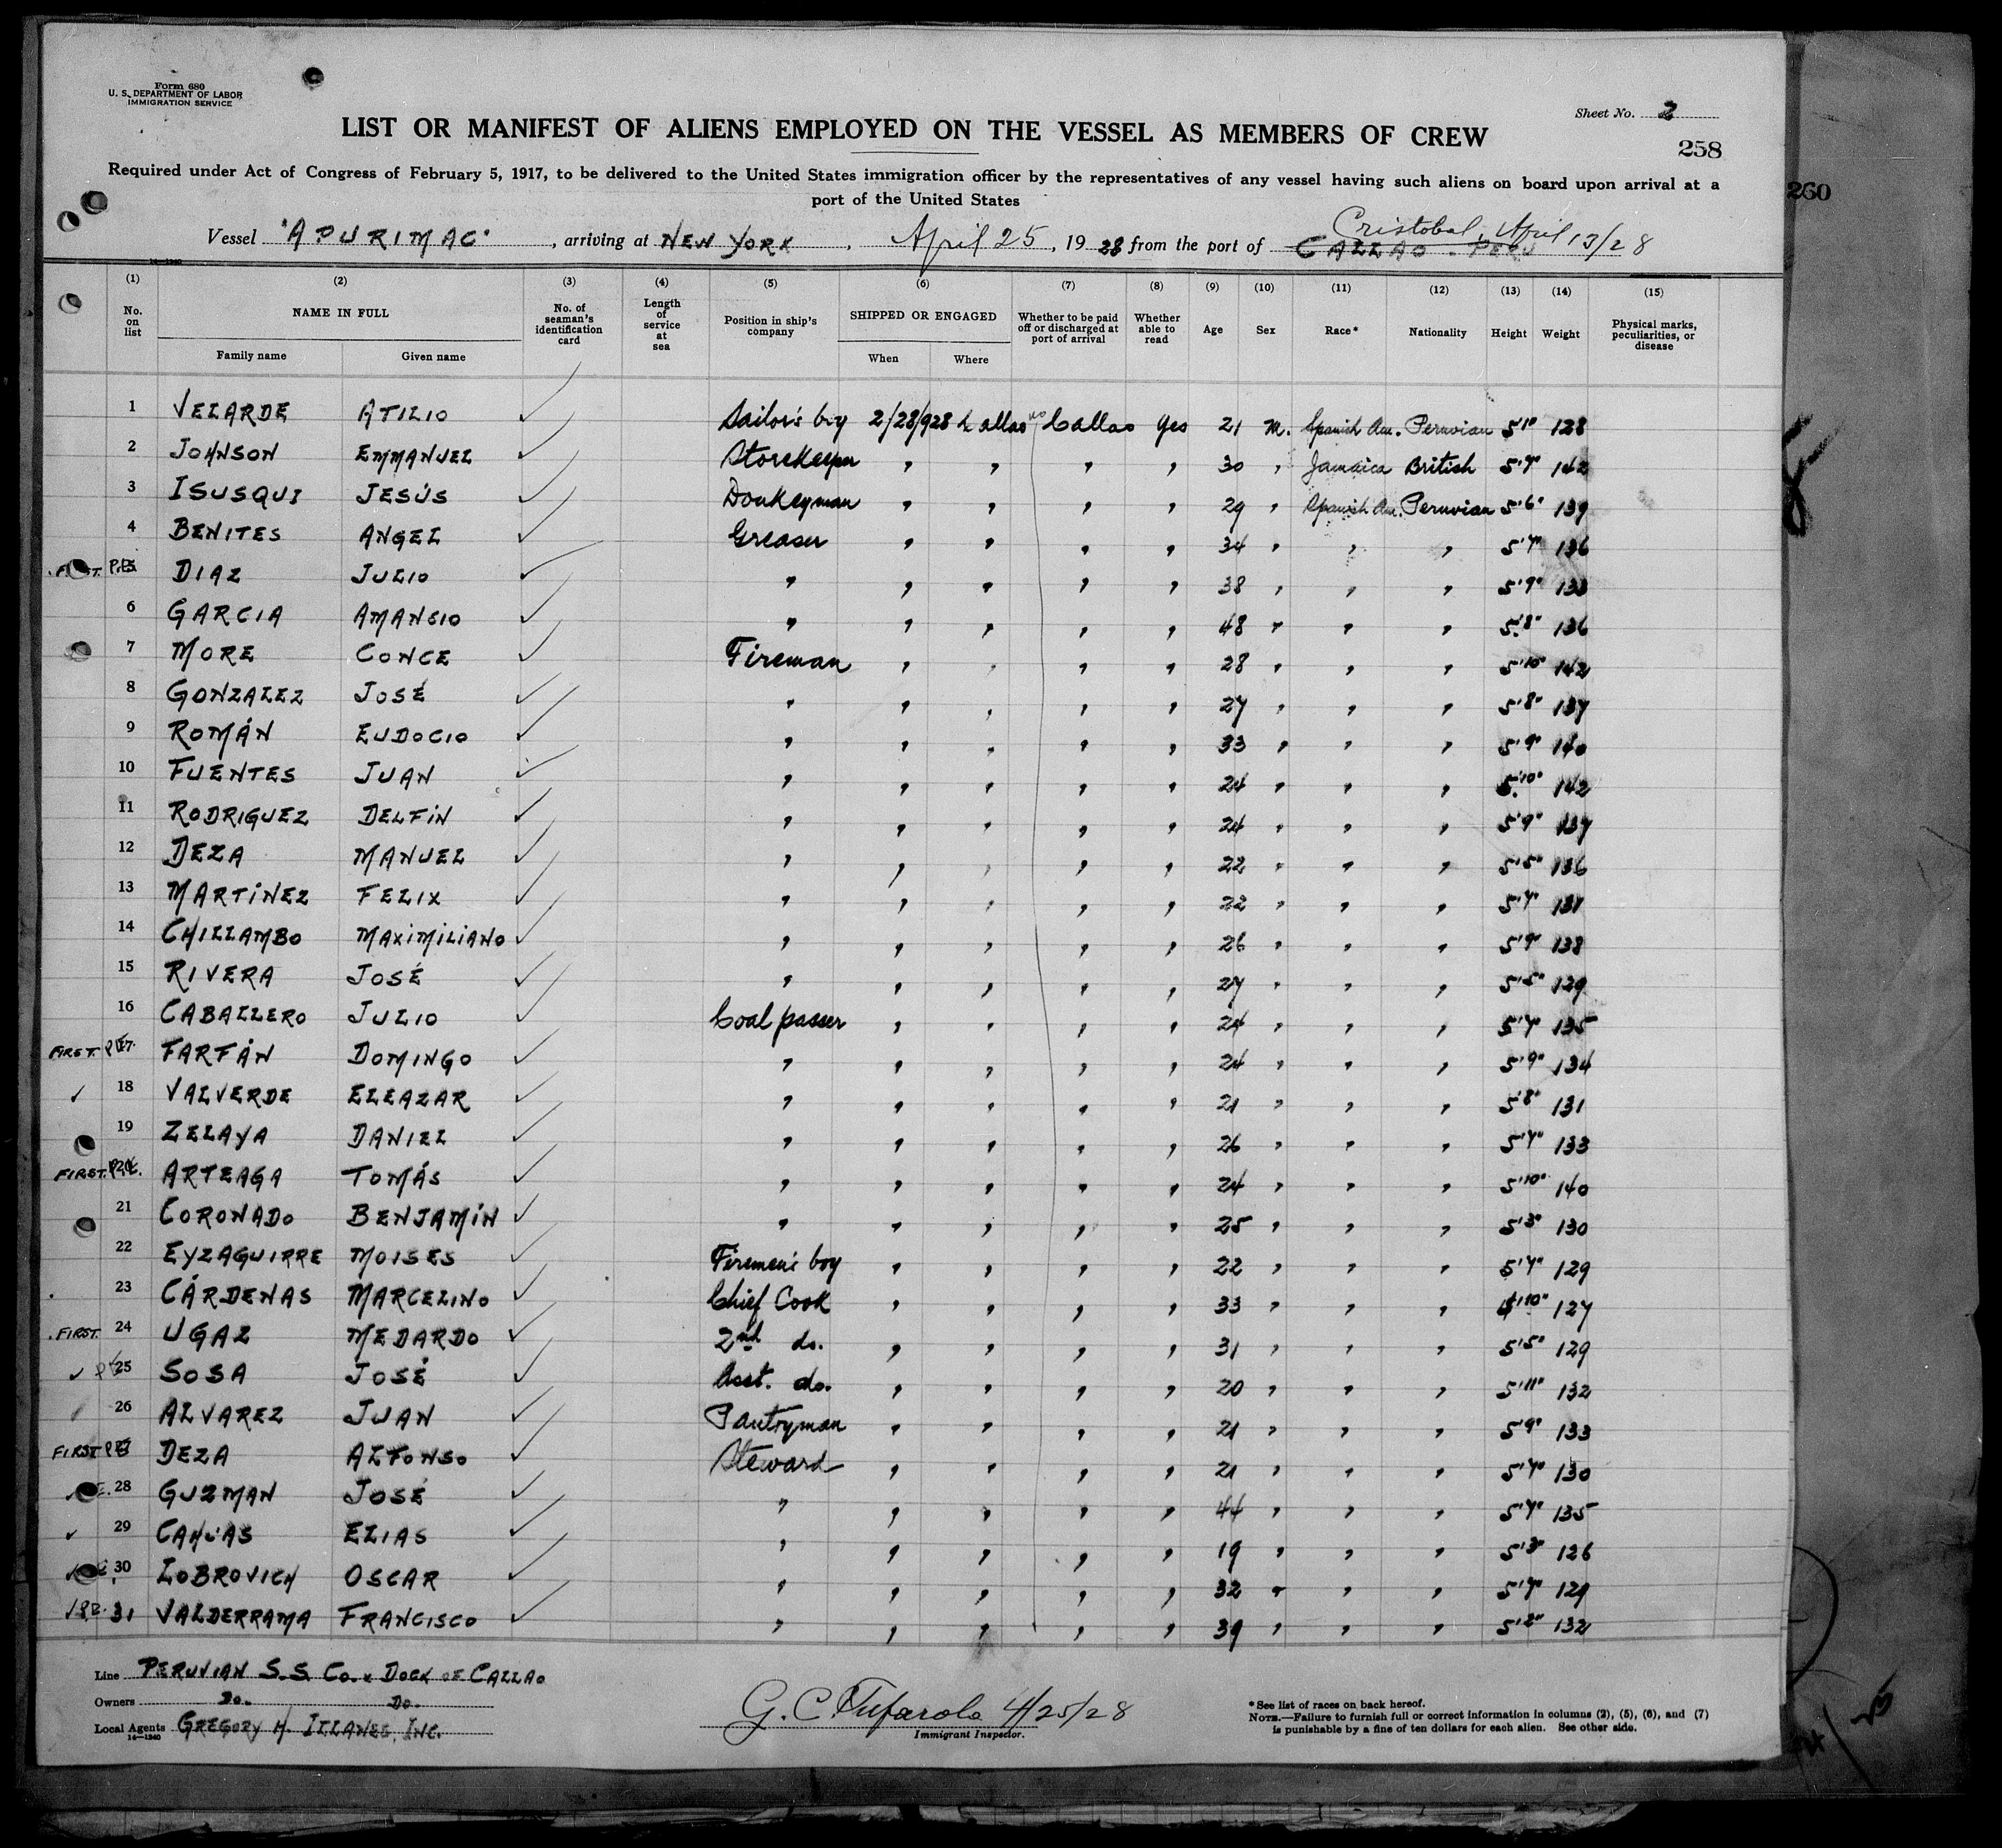 Form 680
U. S. DEPARTMENT OF LABOR
IMMIGRATION SERVICE
Sheet No. 2
LIST OR MANIFEST OF ALIENS EMPLOYED ON THE VESSEL AS MEMBERS OF CREW
258
Required under Act of Congress of February 5, 1917, to be delivered to the United States immigration officer by the representatives of any vessel having such aliens on board upon arrival at a
port of the United States
260
Cristobal, April 13/28
Vessel "APURIMAC", arriving at NEW YORK, April 25, 1928 from the port of CALLAO - PERU
14-1240
(1) (2) (3) (4) (5) (6) (7) (8) (9) (10) (11) (12) (13) (14) (15)
No. on list NAME IN FULL No. of seaman's identification card Length of service at sea Position in ship's company SHIPPED OR ENGAGED Whether to be paid off or discharged at port of arrival Whether able to read Age Sex Race* Nationality Height Weight Physical marks, peculiarities, or disease
Family name Given name When Where
1 VELARDE ATILIO ✓ Sailor's boy 2/28/928 Callao no Callao Yes 21 M. Spanish Am. Peruvian 5'1" 128
2 JOHNSON EMMANUEL ✓ Storekeeper " " " " 30 " Jamaica British 5'7" 142
3 ISUSQUI JESÚS ✓ Donkeyman " " " " 29 " Spanish Am. Peruvian 5'6" 139
4 BENITES ANGEL ✓ Greaser " " " " 34 " " " 5'7" 136
FIRST. 5 DIAZ JULIO ✓ " " " " " 38 " " " 5'9" 133
6 GARCIA AMANSIO ✓ " " " " " 48 " " " 5'8" 136
7 MORE CONCE ✓ Fireman " " " " 28 " " " 5'10" 142
8 GONZALEZ JOSÉ ✓ " " " " " 27 " " " 5'8" 137
9 ROMÁN EUDOCIO ✓ " " " " " 33 " " " 5'9" 140
10 FUENTES JUAN ✓ " " " " " 24 " " " 5'10" 142
11 RODRIGUEZ DELFIN ✓ " " " " " 24 " " " 5'9" 137
12 DEZA MANUEL ✓ " " " " " 22 " " " 5'5" 136
13 MARTINEZ FELIX ✓ " " " " " 22 " " " 5'7" 131
14 CHILLAMBO MAXIMILIANO ✓ " " " " " 26 " " " 5'9" 138
15 RIVERA JOSÉ ✓ " " " " " 27 " " " 5'5" 129
16 CABALLERO JULIO ✓ Coal passer " " " " 24 " " " 5'7" 135
FIRST. 17 FARFÁN DOMINGO ✓ " " " " " 24 " " " 5'9" 134
✓ 18 VALVERDE ELEAZAR ✓ " " " " " 21 " " " 5'8" 131
19 ZELAYA DANIEL ✓ " " " " " 26 " " " 5'7" 133
FIRST. 20 ARTEAGA TOMÁS ✓ " " " " " 24 " " " 5'10" 140
21 CORONADO BENJAMIN ✓ " " " " " 25 " " " 5'3" 130
22 EYZAGUIRRE MOISES ✓ Firemen's boy " " " " 22 " " " 5'7" 129
23 CÁRDENAS MARCELINO ✓ Chief Cook " " " " 33 " " " 5'10" 127
FIRST. 24 UGAZ MEDARDO ✓ 2nd do. " " " " 31 " " " 5'5" 129
✓ 25 SOSA JOSÉ ✓ Asst. do. " " " " 20 " " " 5'11" 132
26 ALVAREZ JUAN ✓ Pantryman " " " " 21 " " " 5'9" 133
FIRST 27 DEZA ALFONSO ✓ Steward " " " " 21 " " " 5'7" 130
28 GUZMAN JOSÉ ✓ " " " " " 44 " " " 5'7" 135
✓ 29 CAHUAS ELIAS ✓ " " " " " 19 " " " 5'3" 126
30 LOBROVICH OSCAR ✓ " " " " " 32 " " " 5'7" 129
31 VALDERRAMA FRANCISCO ✓ " " " " " 39 " " " 5'2" 132
Line PERUVIAN S.S. Co. & DOCK OF CALLAO
Owners Do. Do.
Local Agents GREGORY H. ILLANES, INC.
14-1240
G. C. Tufarolo 4/25/28
Immigrant Inspector.
*See list of races on back hereof.
NOTE.—Failure to furnish full or correct information in columns (2), (5), (6), and (7)
is punishable by a fine of ten dollars for each alien. See other side.